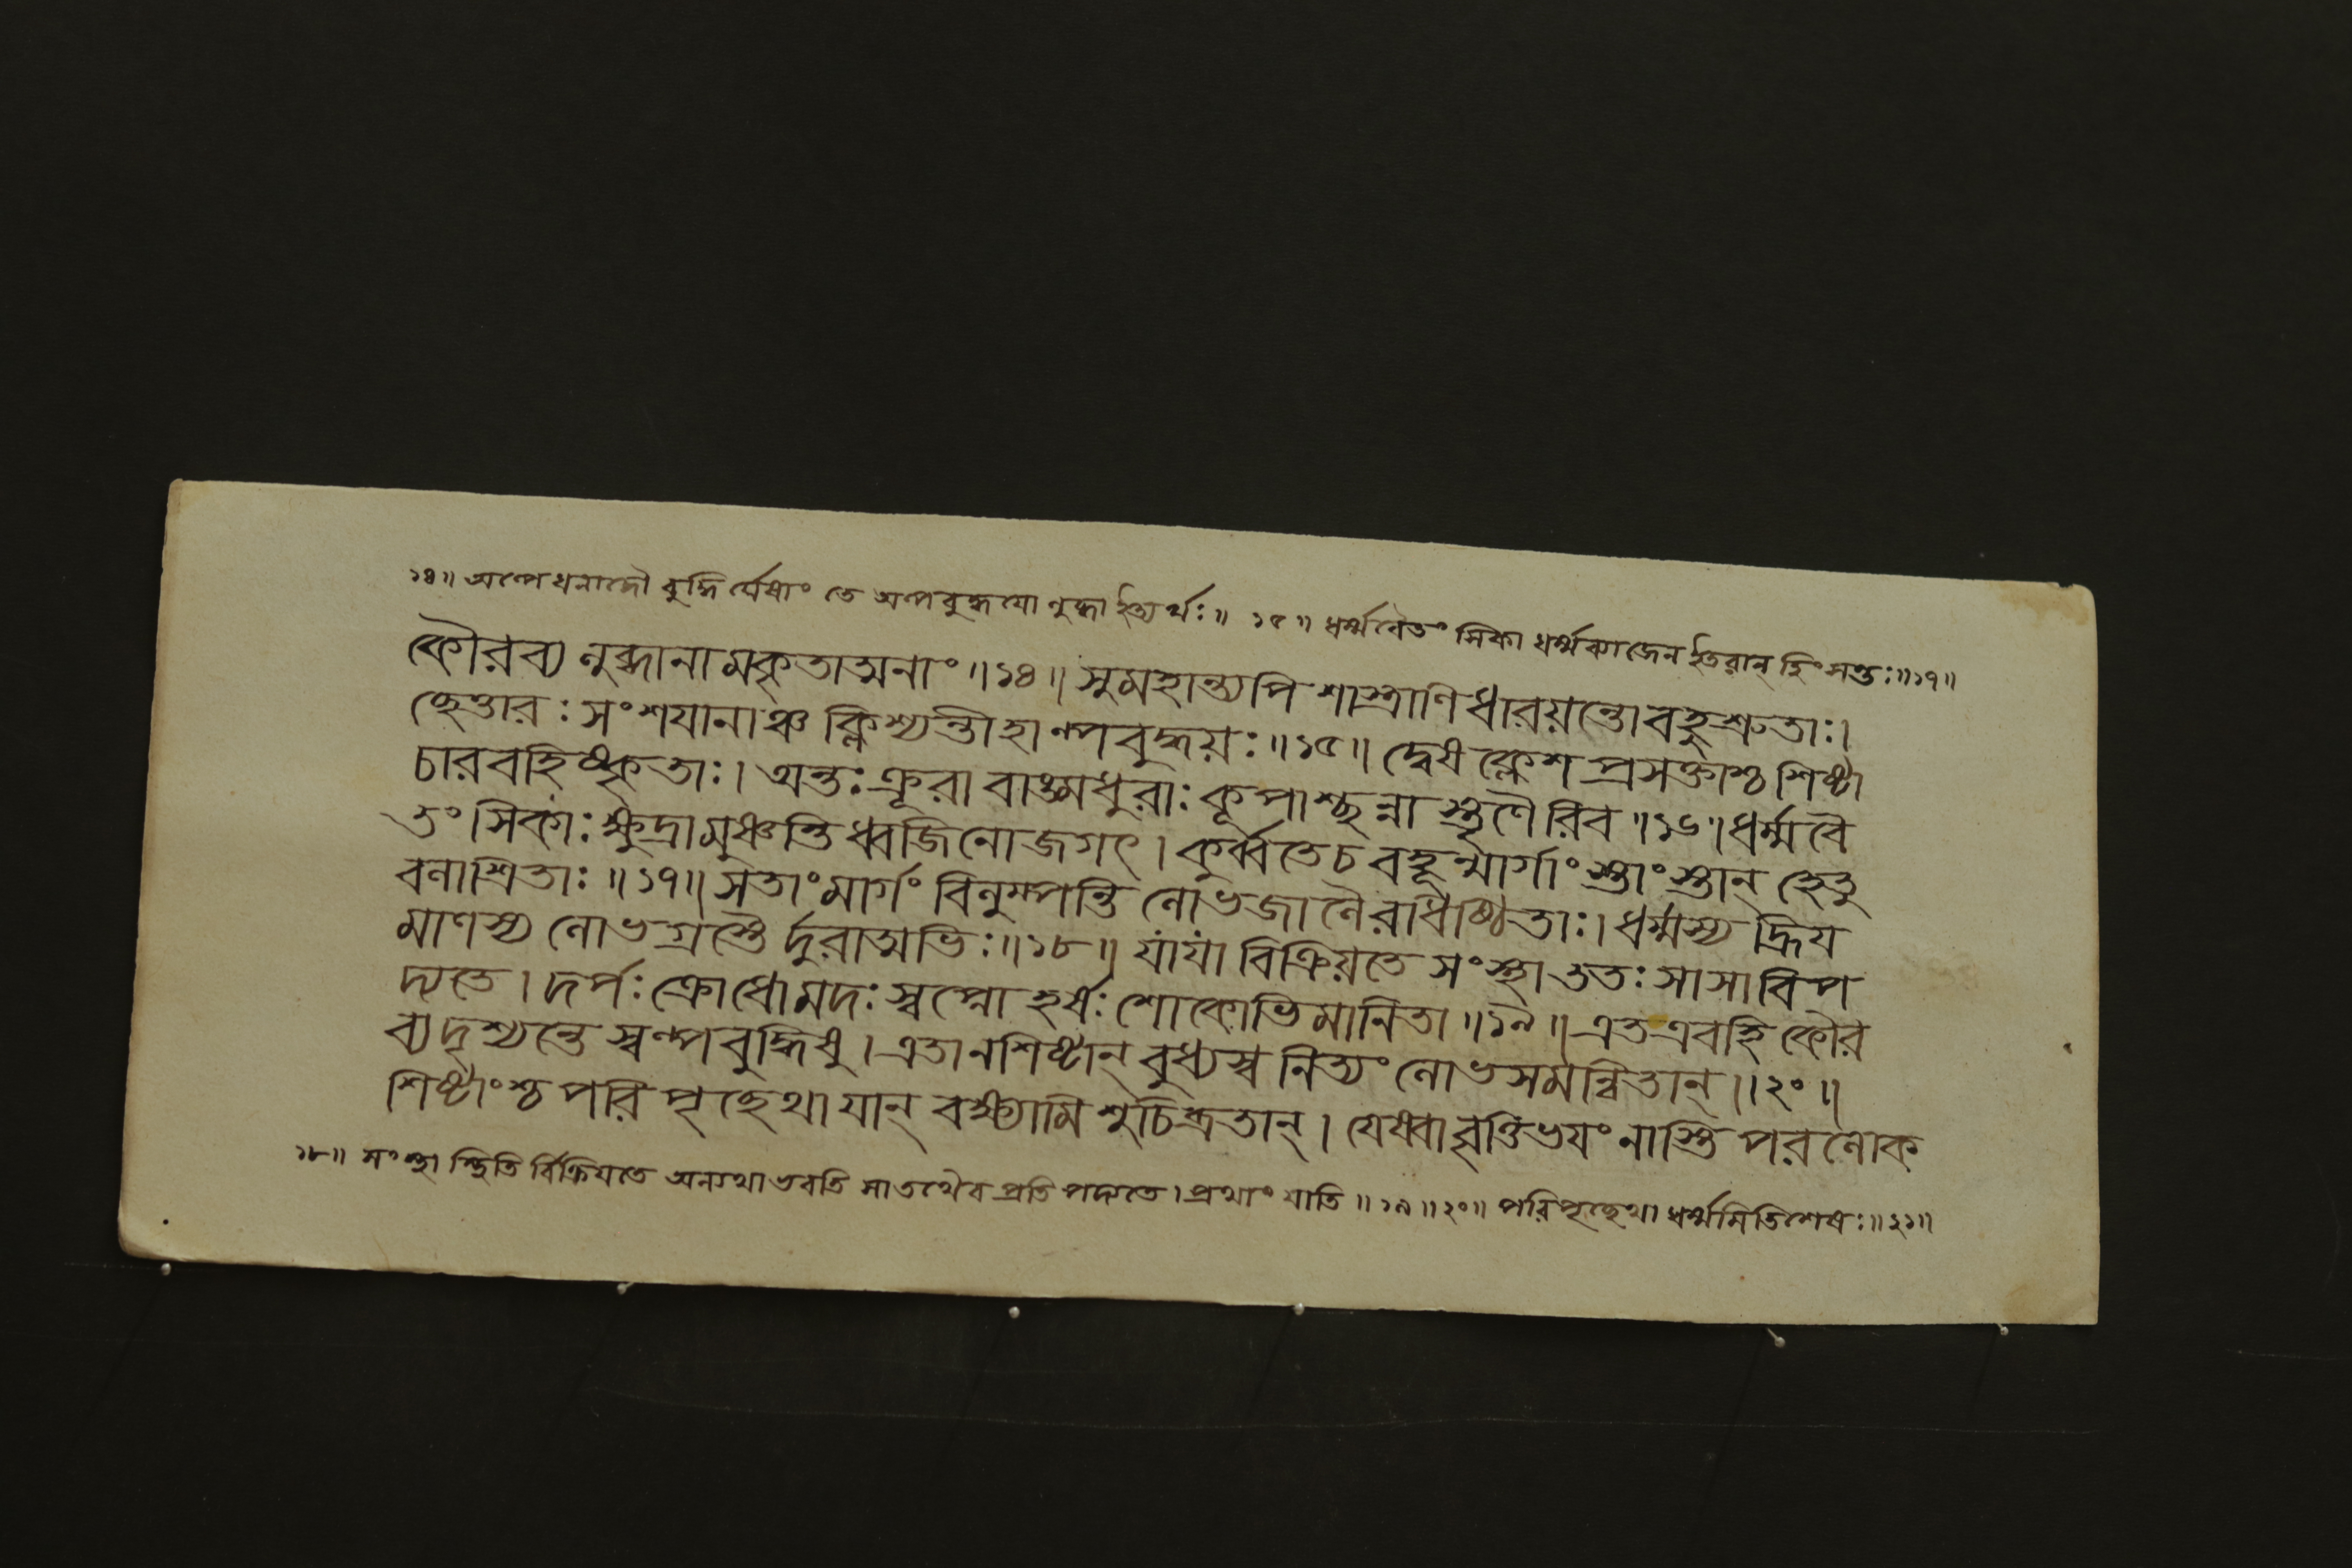 ১৪॥ অল্পে ধনাদৌ বুদ্ধি র্যেষাং তে অল্পবুদ্ধযো লুব্ধা ইত্যর্থঃ॥ ১৫॥ ধর্ম্মবৈতং সিকা ধর্ম্মব্যাজেন ইতরান্ হিংসন্তঃ॥১৭॥
কৌরব্য লুব্ধানামকৃতাত্মনাং॥১৪॥ সুমহান্ত্যপি শাস্ত্রাণি ধারয়ন্তো বহুশ্রুতাঃ।
ছেত্তারঃ সংশযানাঞ্চ ক্লিশ্যন্তীহাল্পবুদ্ধয়ঃ॥১৫॥ দ্বেষ ক্লেশ প্রসক্তাশ্চ শিষ্টা
চারবহিষ্কৃতাঃ। অন্তঃ ক্রূরা বাঙ্মধুরাঃ কূপাশ্ছন্না স্তৃণৈ রিব॥১৬॥ ধর্ম্মবৈ
তং সিকাঃ ক্ষুদ্রা মুঞ্চন্তি ধ্বজিনো জগৎ। কুর্ব্বতে চ বহূন্মার্গাং স্তাং স্তান্ হেতু
বলাশ্রিতাঃ॥১৭॥ সতাং মার্গং বিলুম্পন্তি লোভজালৈরধিষ্ঠিতাঃ। ধর্ম্মস্য হ্রিয
মাণস্য লোভগ্রস্তৈ র্দুরাত্মভিঃ॥১৮॥ যা যা বিক্রিয়তে সংস্থা ততঃ সা সা বিপ
দ্যতে। দর্পঃ ক্রোধো মদঃ স্বপ্নো হর্ষঃ শোকোভিমানিতা॥১৯॥ এত এবহি কৌর
ব্য দৃশ্যন্তে স্বল্পবুদ্ধিষু। এতানশিষ্টান্ বুধ্যস্ব নিত্যং লোভসমন্বিতান্॥২০॥
শিষ্টাংশ্চ পরি পৃচ্ছেথা যান্ বক্ষ্যামি শুচিব্রতান্। যেষ্বাবৃত্তিভযং নাস্তি পরলোক
১৮॥ সংস্থা স্থিতি র্বিক্রিযতে অন্যথা ভবতি সা তথৈব প্রতি পদ্যতে। প্রথাং যাতি॥১৯॥২০॥ পরিপৃচ্ছেথা ধর্ম্মমিতিশেষঃ॥২১॥